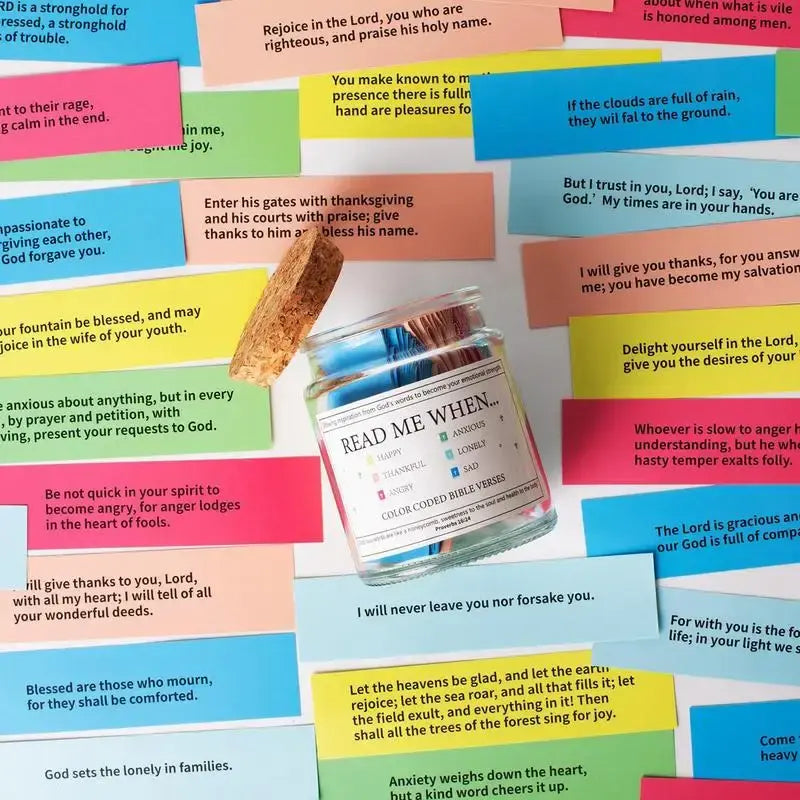 RD is a stronghold for
ressed, a stronghold
s of trouble.
Rejoice in the Lord, you who are
righteous, and praise his holy name.
about when what is vile
is honored among men.
nt to their rage,
g calm in the end.
in me,
me joy.
You make known to m
presence there is fulln
hand are pleasures fo
If the clouds are full of rain,
they wil fal to the ground.
But I trust in you, Lord; I say, ‘You are
God.’ My times are in your hands.
Enter his gates with thanksgiving
and his courts with praise; give
thanks to him and bless his name.
mpassionate to
rgiving each other,
God forgave you.
I will give you thanks, for you answ
me; you have become my salvation
our fountain be blessed, and may
joice in the wife of your youth.
Delight yourself in the Lord,
give you the desires of your
e anxious about anything, but in every
, by prayer and petition, with
ving, present your requests to God.
Whoever is slow to anger h
understanding, but he who
hasty temper exalts folly.
inspiration from God's words to become your emotional strength
READ ME WHEN...
HAPPY
THANKFUL
ANGRY
ANXIOUS
LONELY
SAD
COLOR CODED BIBLE VERSES
words are like a honeycomb, sweetness to the soul and health to the body
Proverbs 16:24
Be not quick in your spirit to
become angry, for anger lodges
in the heart of fools.
The Lord is gracious an
our God is full of compa
will give thanks to you, Lord,
with all my heart; I will tell of all
your wonderful deeds.
I will never leave you nor forsake you.
For with you is the fo
life; in your light we s
Blessed are those who mourn,
for they shall be comforted.
Let the heavens be glad, and let the earth
rejoice; let the sea roar, and all that fills it; let
the field exult, and everything in it! Then
shall all the trees of the forest sing for joy.
Come
heavy
God sets the lonely in families.
Anxiety weighs down the heart,
but a kind word cheers it up.